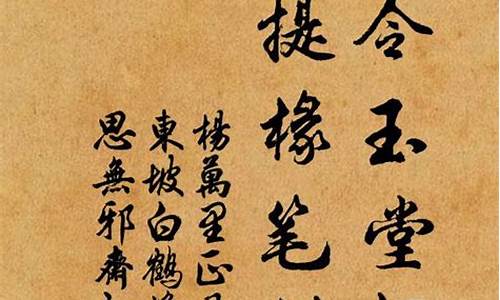 令玉堂
提椽笔
楊萬里正
東坡白鶴
思無邪齋